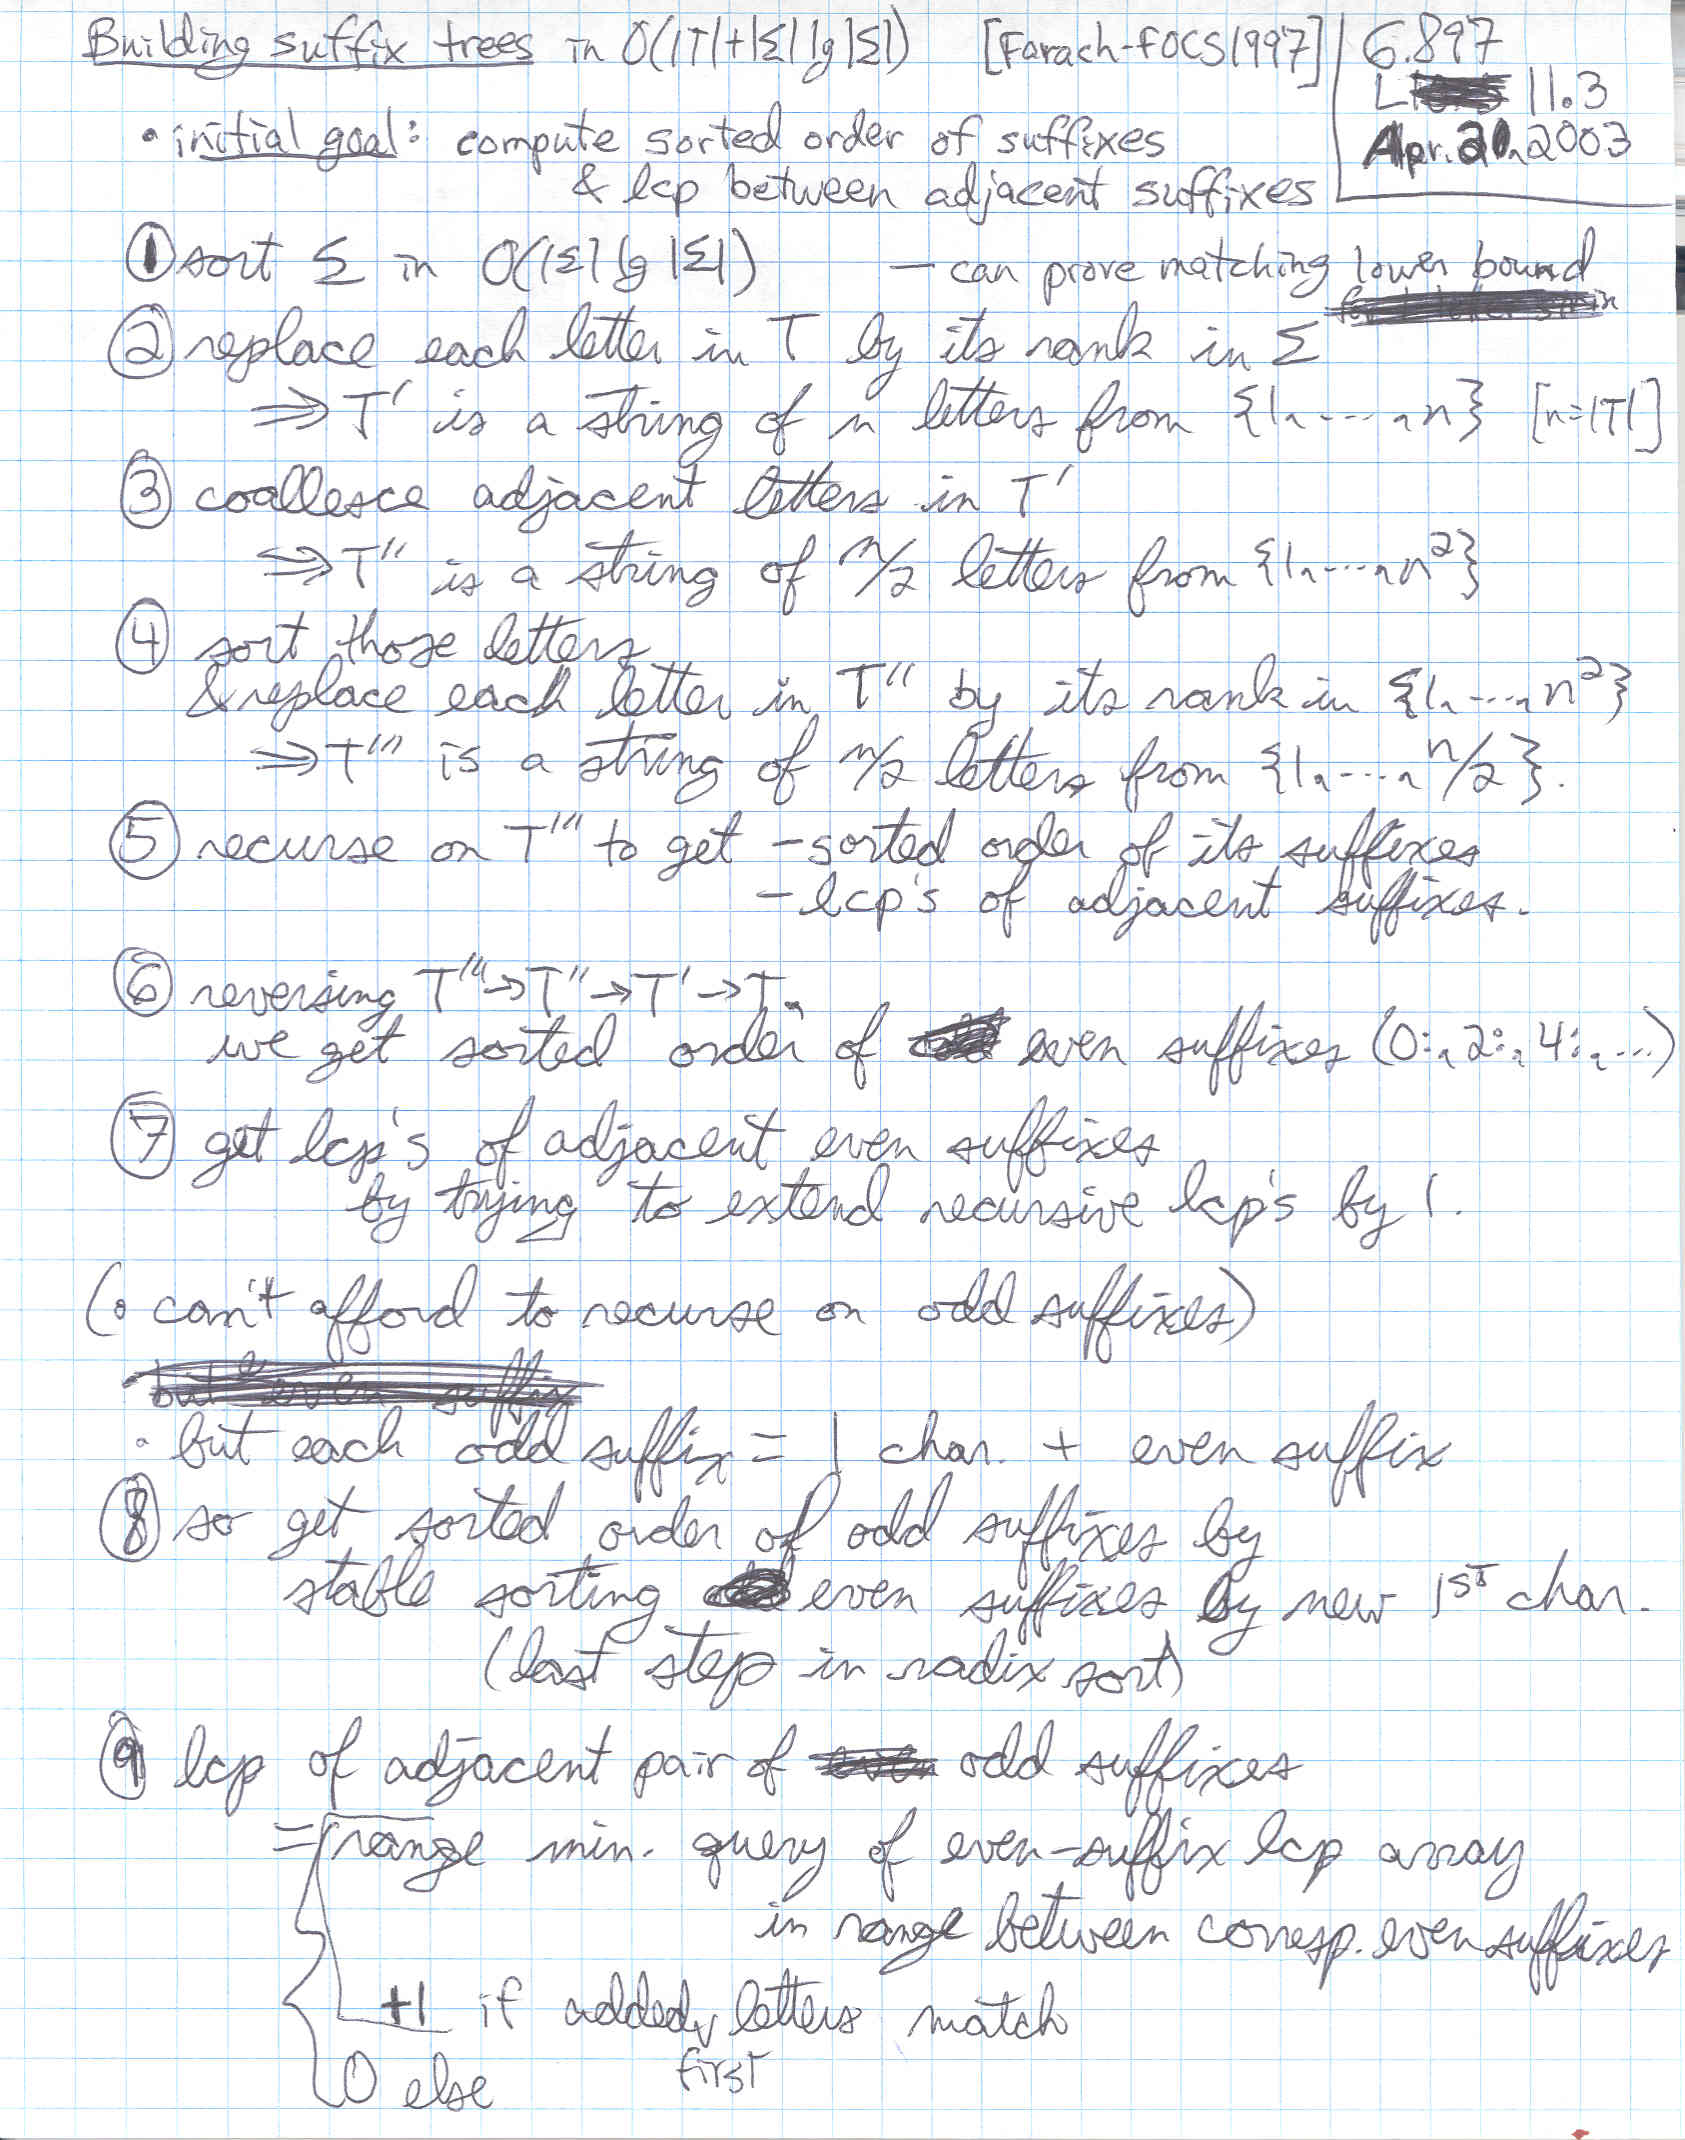 Building suffix trees in O(|T|+|Σ| lg |Σ|) [Farach-FOCS 1997]
6.897
L 11.3
Apr. 21, 2003
• initial goal: compute sorted order of suffixes
& lcp between adjacent suffixes
① sort Σ in O(|Σ| lg |Σ|) — can prove matching lower bound
② replace each letter in T by its rank in Σ
⇒ T' is a string of n letters from {1,...,n} [n=|T|]
③ coallesce adjacent letters in T'
⇒ T'' is a string of n/2 letters from {1,...,n²}
④ sort those letters
& replace each letter in T'' by its rank in {1,...,n²}
⇒ T''' is a string of n/2 letters from {1,...,n/2}.
⑤ recurse on T''' to get - sorted order of its suffixes
- lcp's of adjacent suffixes.
⑥ reversing T'''→T''→T'→T,
we get sorted order of even suffixes (0:, 2:, 4:, ...)
⑦ get lcp's of adjacent even suffixes
by trying to extend recursive lcp's by 1.
(• can't afford to recurse on odd suffixes)
• but each odd suffix = 1 char. + even suffix
⑧ so get sorted order of odd suffixes by
stable sorting even suffixes by new 1st char.
(last step in radix sort)
⑨ lcp of adjacent pair of odd suffixes
= { range min. query of even-suffix lcp array
in range between corresp. even suffixes
+1 if added first letters match
0 else